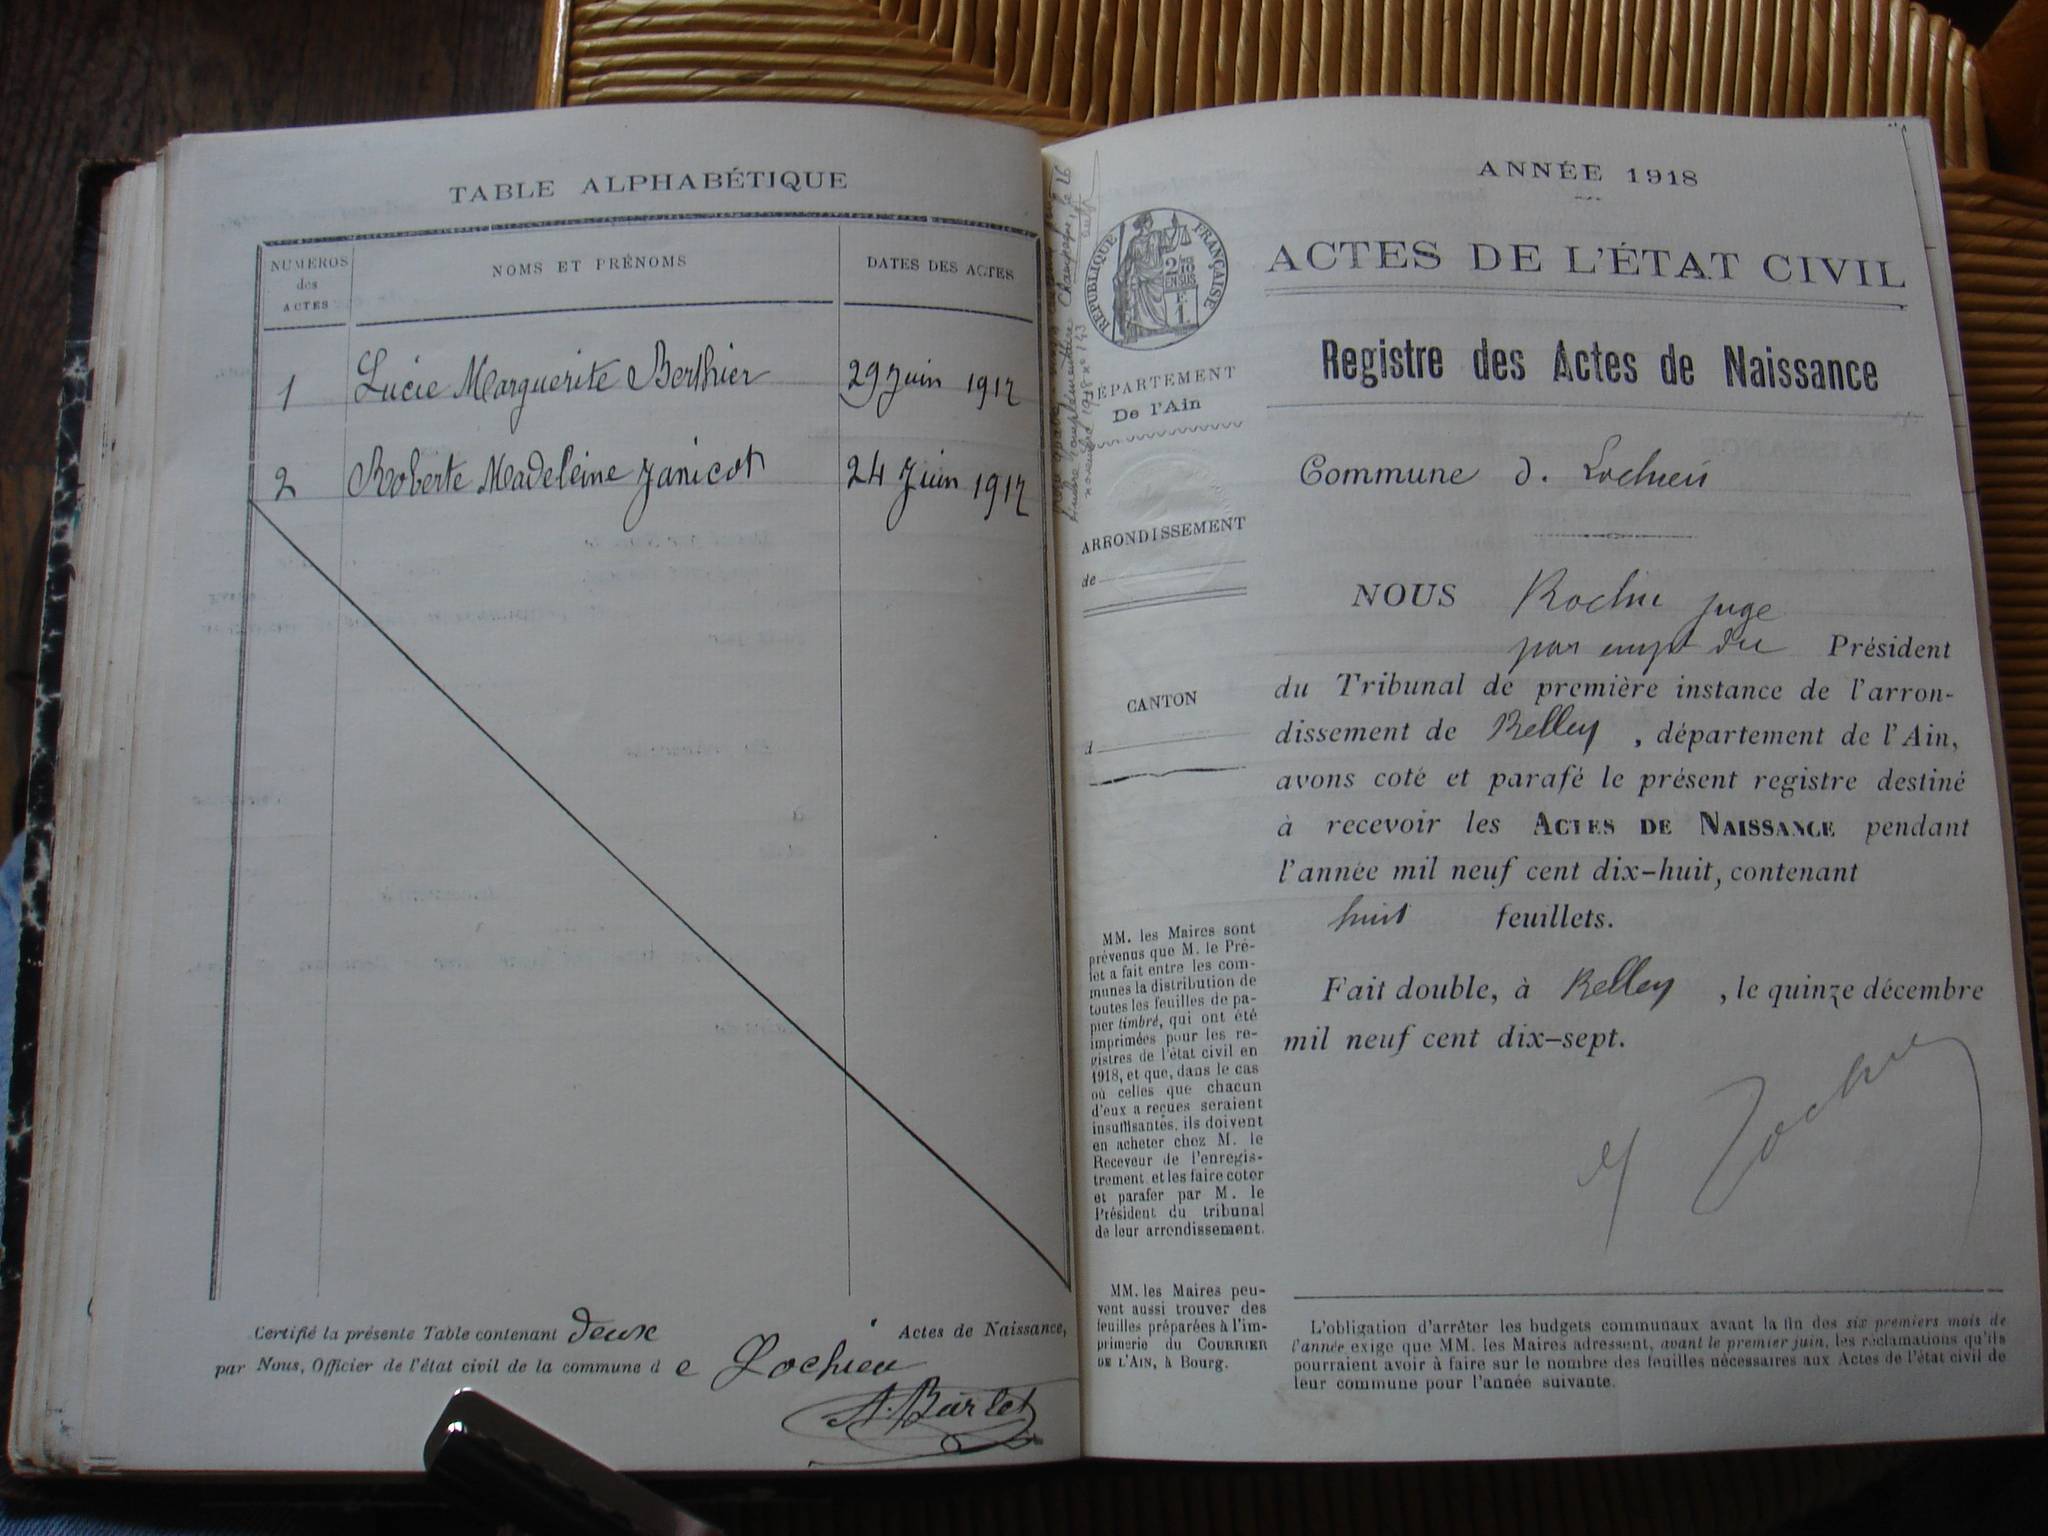 TABLE ALPHABÉTIQUE
NUMÉROS
des
ACTES
NOMS ET PRÉNOMS
DATES DES ACTES
1 Lucie Marguerite Berthier 29 Juin 1917
2 Roberte Madeleine Janicot 24 Juin 1917
Certifié la présente Table contenant deux Actes de Naissance,
par Nous, Officier de l'état civil de la commune de Lochieu
A. Burlet
ANNÉE 1918
RÉPUBLIQUE FRANÇAISE
2/10
EN SUS
F
1.
ACTES DE L'ÉTAT CIVIL
Registre des Actes de Naissance
DÉPARTEMENT
De l'Ain
ARRONDISSEMENT
de
CANTON
d
MM. les Maires sont
prévenus que M. le Pré-
fet a fait entre les com-
munes la distribution de
toutes les feuilles de pa-
pier timbré, qui ont été
imprimées pour les re-
gistres de l'état civil en
1918, et que, dans le cas
où celles que chacun
d'eux a reçues seraient
insuffisantes, ils doivent
en acheter chez M. le
Receveur de l'enregis-
trement et les faire coter
et parafer par M. le
Président du tribunal
de leur arrondissement.
MM. les Maires peu-
vent aussi trouver des
feuilles préparées à l'im-
primerie du COURRIER
DE L'AIN, à Bourg.
Commune d. Lochieu
NOUS Rochu juge
par empt du Président
du Tribunal de première instance de l'arron-
dissement de Belley, département de l'Ain,
avons coté et parafé le présent registre destiné
à recevoir les ACTES DE NAISSANCE pendant
l'année mil neuf cent dix-huit, contenant
huit feuillets.
Fait double, à Belley, le quinze décembre
mil neuf cent dix-sept.
L'obligation d'arrêter les budgets communaux avant la fin des six premiers mois de
l'année exige que MM. les Maires adressent, avant le premier juin, les réclamations qu'ils
pourraient avoir à faire sur le nombre des feuilles nécessaires aux Actes de l'état civil de
leur commune pour l'année suivante.